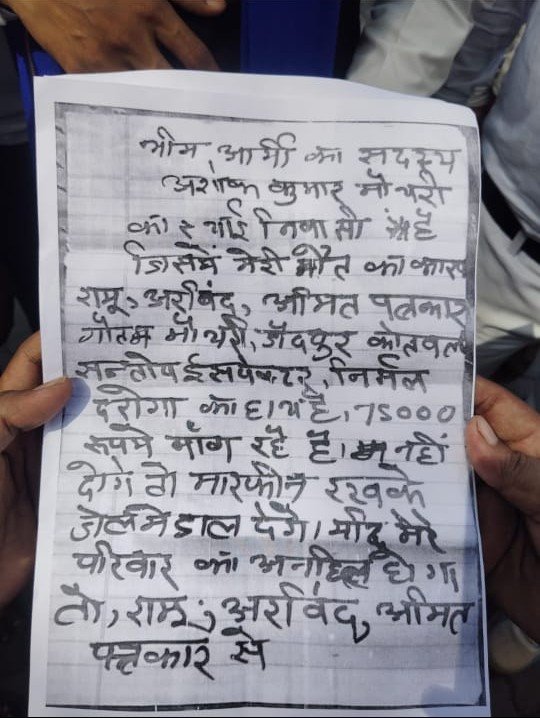 भीम आर्मी का सदस्य
अशोक कुमार मौयरी
का स्थाई निवासी है
जिसमें मेरी मौत का कारण
रामू, अरविंद, अमित पत्रकार
गौतम मौयरी, जैदपुर कोतवाल
सन्तोष ईसपेक्टर, निर्मल
दरोगा का हाथ है, 75000
रूपये माँग रहे है। नहीं
दोगे तो मारफीन रखके
जेल में डाल देंगे। मेरे
परिवार का अनहित हो गा
तो, रामू, अरविंद, अमित
पत्रकार से